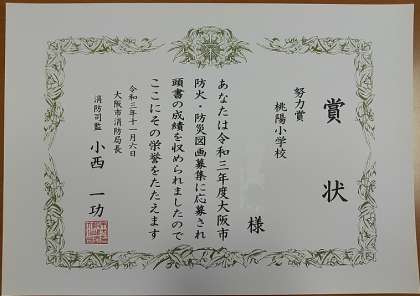 賞状
努力賞
桃陽小学校
様
あなたは令和三年度大阪市
防火・防災図画募集に応募され
頭書の成績を収められましたので
ここにその栄誉をたたえます
令和三年十一月六日
大阪市消防局長
消防司監 小西一功